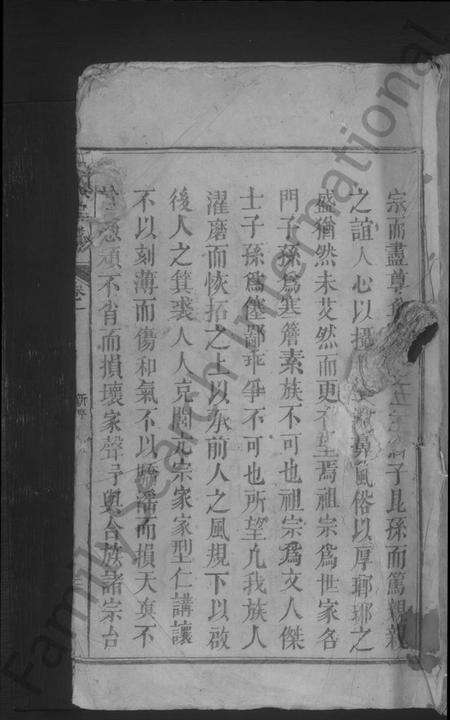 宗而盡尊子昆孫而篤親親
之誼人心以風俗以厚瑯琊之
盛猶然未艾然而更有望焉祖宗為世家名
門子孫為寒簷素族不可也祖宗為文人傑
士子孫為傖鄙平爭不可也所望凡我族人
濯磨而恢拓之上以承前人之風規下以啟
後人之箕裘人人克閑元宗家家型仁講讓
不以刻薄而傷和氣不以驕滛而損天真不
頑不肖而損壞家聲予與合族諸宗台
卷一
Family Search International